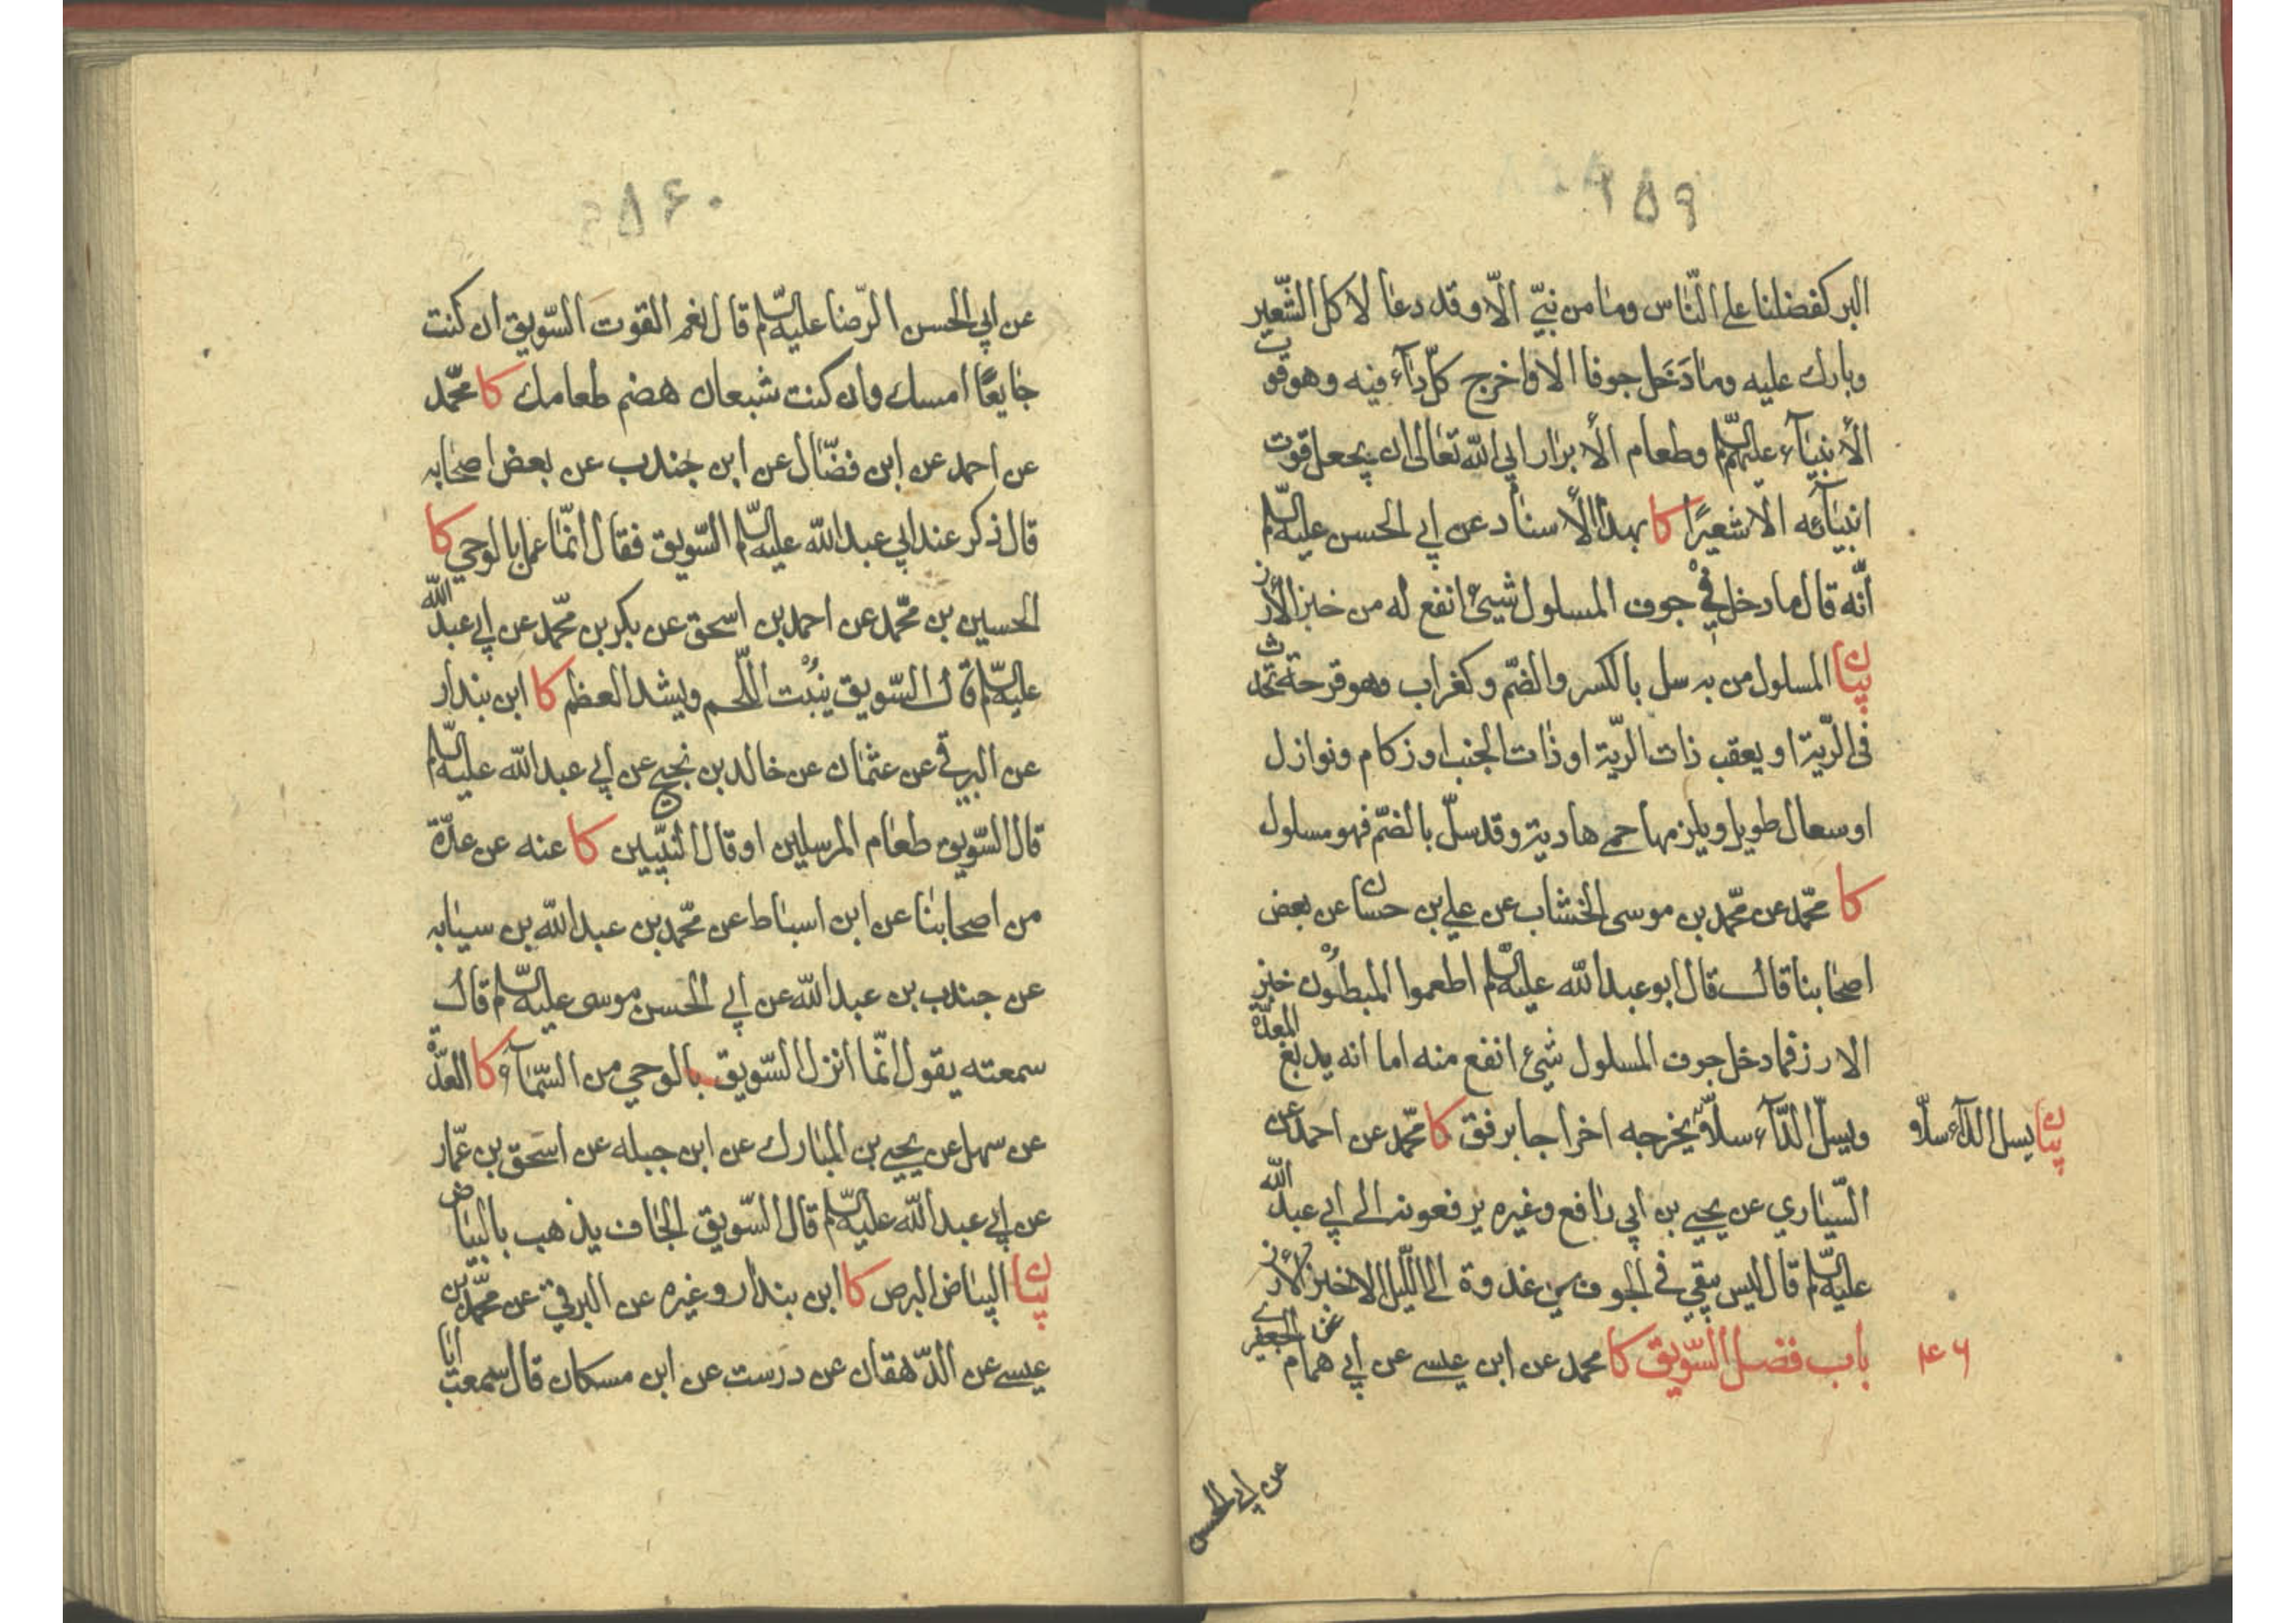 ۹۵۹
البر كفضلنا على النّاس وما من نبيّ الّا وقد دعا لاكل الشّعير
وبارك عليه وما دَخَل جوفا الا واخرج كلّ دآء فيه وهو قوت
الأنبيآء عليهم السّلم وطعام الأبرار ابى الله تعالى ان يجعل قوت
انبيآئه الا شعيرًا كا بهذا الأسناد عن ابي الحسن عليه السّلم
أنّه قال ما دخل في جوف المسلول شيئ انفع له من خبز الأرز
بيان المسلول من به سل بالكسر والضمّ وكغراب وهو قرحة تحدث
فى الرّية او يعقب ذات الرّية او ذات الجنب او زكام ونوازل
او سعال طويل ويلزمها حمى هادية وقد سلّ بالضمّ فهو مسلول
كا محمّد عن محمّد بن موسى الخشاب عن علي بن حسان عن بعض
اصحابنا قال قال ابو عبد الله عليه السّلم اطعموا المبطون خبز
الارز فما دخل جوف المسلول شيئ انفع منه اما انه يدبغ المعدة
ويسلّ الدّآء سلّا يخرجه اخراجا برفق كا محمّد عن احمد عن
بيان يسل الدآء سلّا و
السّياري عن يحيى بن ابي رافع وغيره يرفعونه الى ابي عبد الله
عليه السّلم قال ليس يبقي في الجوف من غدوة الى اللّيل الا خبز الأرز
باب فضل السّويق كا محمد عن ابن عيسى عن ابي همام عن الجعفري
عن ابي الحسن
۹۶۰
عن ابي الحسن الرّضا عليه السّلم قال نعم القوت السّويق ان كنت
جايعًا امسك وان كنت شبعان هضم طعامك كا محمّد
عن احمد عن ابن فضّال عن ابن جندب عن بعض اصحابه
قال ذكر عند ابي عبد الله عليه السّلم السّويق فقال انّما عمل بالوحي كا
الحسين بن محمّد عن احمد بن اسحق عن بكر بن محمّد عن ابي عبد الله
عليه السّلم قال السّويق ينبت اللّحم ويشد العظم كا ابن بندار
عن البرقي عن عثمان عن خالد بن نجيح عن ابي عبد الله عليه السّلم
قال السّويق طعام المرسلين او قال النّبيّين كا عنه عن عدّة
من اصحابنا عن ابن اسباط عن محمّد بن عبد الله بن سيابه
عن جندب بن عبد الله عن ابي الحسن موسى عليه السّلم قال
سمعته يقول انّما انزل السّويق بالوحي من السّمآء كا العدّة
عن سهل عن يحيى بن المبارك عن ابن جبله عن اسحق بن عمّار
عن ابي عبد الله عليه السّلم قال السّويق الجاف يذهب بالبياض
بيان البياض البرص كا ابن بندار وغيره عن البرقي عن محمّد بن
عيسى عن الدّهقان عن درست عن ابن مسكان قال سمعت ابا